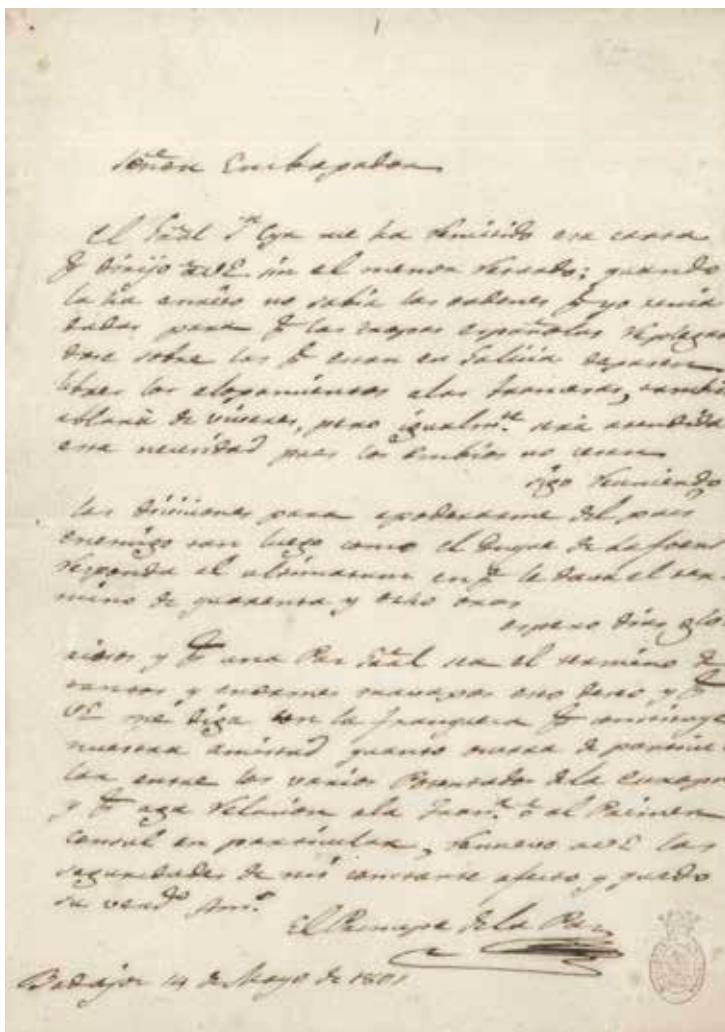 1
Señor Embaxador
El Gral Sn Cyr me ha remitido esa carta
q dirijo a VE sin el menor retardo; quando
la ha escrito no sabia las ordenes q yo tenia
dadas para q las tropas españolas replegan
dose sobre las q estan en Galicia dejasen
libres los alojamientos a las francesas, tambien
ablará de viveres, pero igualmte será atendida
esa necesidad pues los no
sigo reuniendo
las divisiones para apoderarme del pais
enemigo tan luego como el Duque de Lafoens
responda al ultimatum en q le dava el ter
mino de quarenta y ocho oras
espero dias glo
riosos y q una Paz Gral sea el termino de
tantos y enormes travajos eso deseo y q
VE me diga con la franqueza q constituye
nuestra amistad quanto ocurra de particu
lar entre los varios Potentados de la Europa
y q aga relacion a la Franc.ª ó al Primer
Consul en particular, renuevo a VE las
seguridades de mi constante afecto y quedo
su verdº Amº
El Principe de la Paz
Badajoz 14 de Mayo de 1801